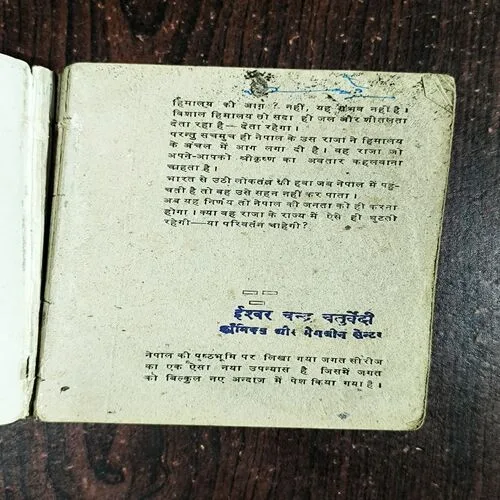 हिमालय की आग ? नहीं, यह संभव नहीं है ।
विशाल हिमालय तो सदा ही जल और शीतलता
देता रहा है—देता रहेगा ।
परन्तु सचमुच ही नेपाल के उस राजा ने हिमालय
के अंचल में आग लगा दी है । वह राजा जो
अपने-आपको श्रीकृष्ण का अवतार कहलवाना
चाहता है ।
भारत से उठी लोकतन्त्र की हवा जब नेपाल में पहुं-
चती है तो वह उसे सहन नहीं कर पाता ।
अब यह निर्णय तो नेपाल की जनता को ही करना
होगा । क्या वह राजा के राज्य में ऐसे ही घुटती
रहेगी—या परिवर्तन चाहेगी ?
ईश्वर चन्द्र चतुर्वेदी
कॉमिक्स और मैगजीन सेन्टर
नेपाल की पृष्ठभूमि पर लिखा गया जगत सीरीज
का एक ऐसा नया उपन्यास है जिसमें जगत
को बिल्कुल नए अन्दाज में पेश किया गया है ।